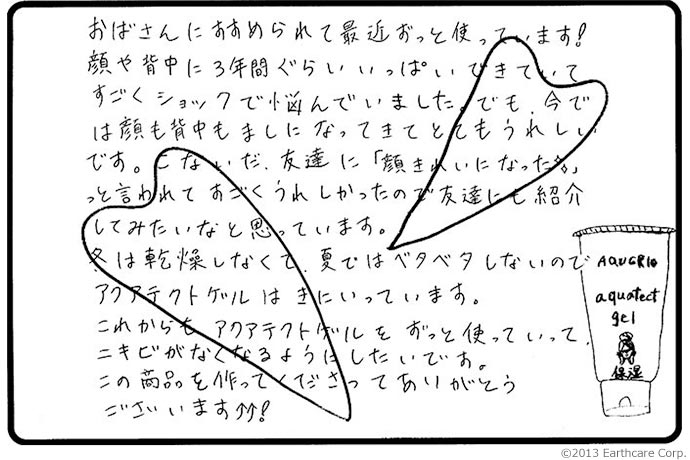 おばさんにすすめられて最近ずっと使っています!
顔や背中に3年間ぐらいいっぱいできていて
すごくショックで悩んでいました。でも、今で
は顔も背中もましになってきてとてもうれしい
です。こないだ、友達に「顔きれいになったね」
っと言われてすごくうれしかったので友達にも紹介
してみたいなと思っています。
冬は乾燥しなくて、夏ではベタベタしないので
アクアテクトゲルはきにいっています。
これからもアクアテクトゲルをずっと使っていって、
ニキビがなくなるようにしたいです。
この商品を作ってくださってありがとう
ございます!
AQUERIO
aquatect
gel
保湿
©2013 Earthcare Corp.